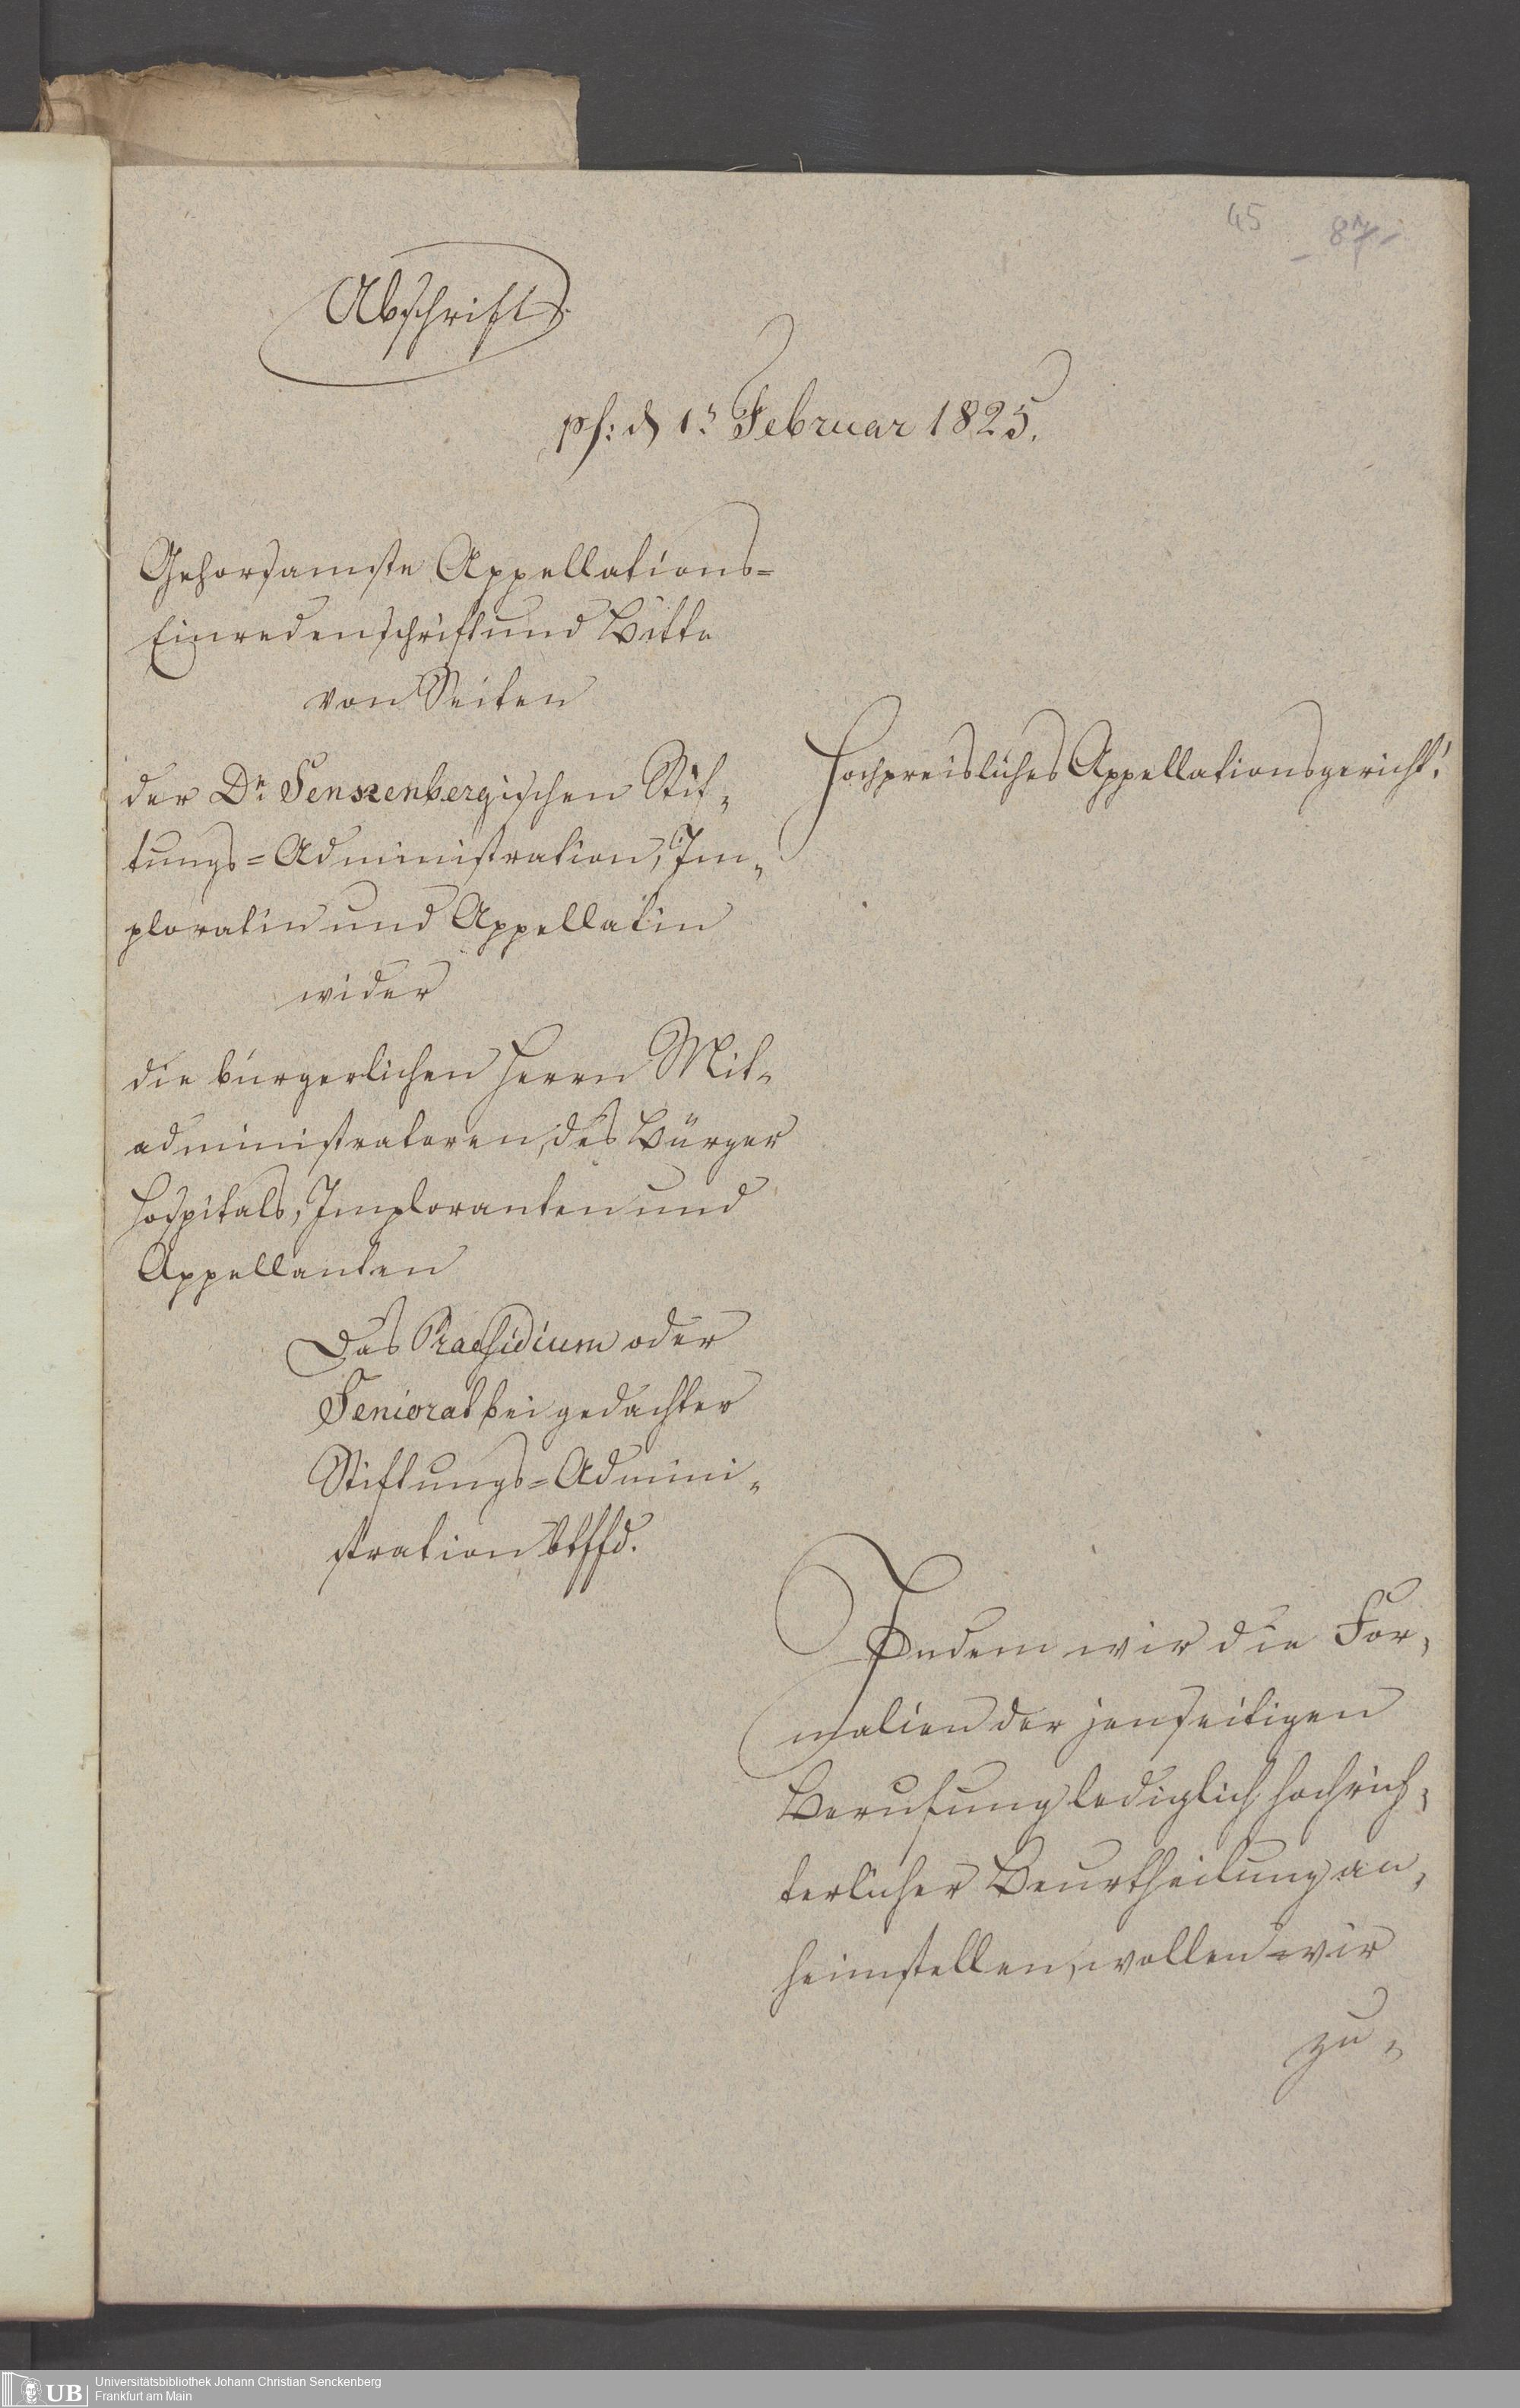 45
87
Abschrift.
ps: d 1s Februar 1825.
Gehorsamste Appellations=
Einredenschrift und Bitte
von Seiten
der Dr. Senkenbergischen Stif„
tungs=Administration, Im„
ploratin und Appellatin
wider
die bürgerlichen Herrn Mit„
administratoren des Bürger
Hospitals, Imploranten und
Appellanten
Das Praesidium oder
Seniorat bei gedachter
Stiftungs=Admini„
stration btffd.
Hochpreisliches Appellationsgericht!
Indem wir die For„
malien der jenseitigen
Berufung lediglich hochrich„
terlicher Beurtheilung an„
heimstellen, wollen wir
zu„
UB
Universitätsbibliothek Johann Christian Senckenberg
Frankfurt am Main